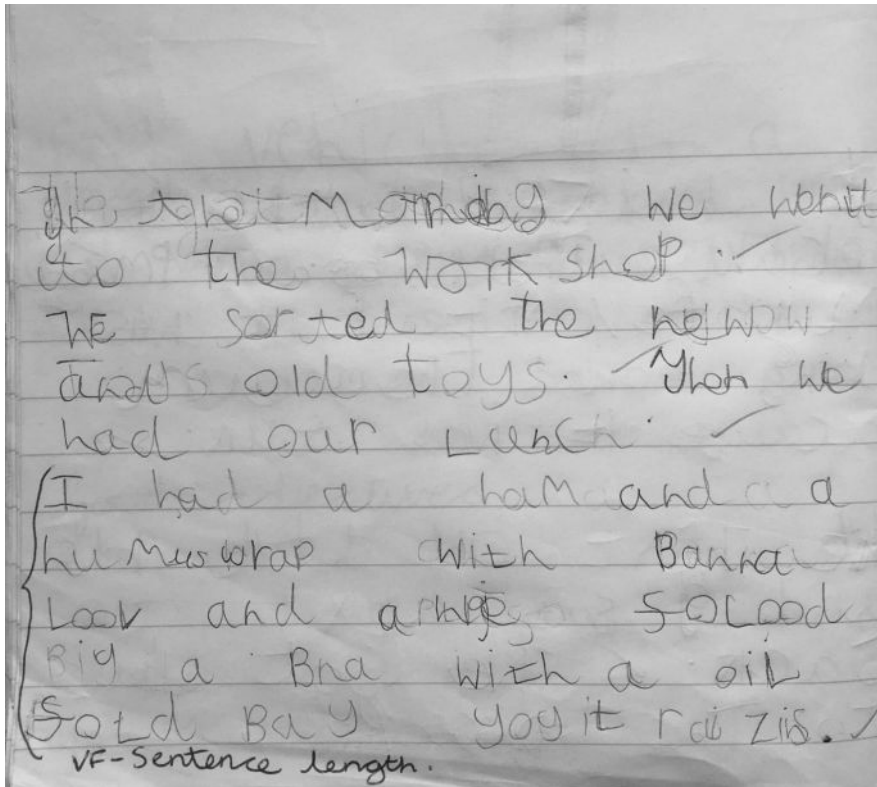 Morning we went
to the work shop.
WE sorted the new
and old toys. Then we
had our Lunch.
I had a ham and a
humus wrap with Banna
Loov and a Solood
Big a Bna with a oil
Sold Bay yogit raizis.
VF-Sentence length.